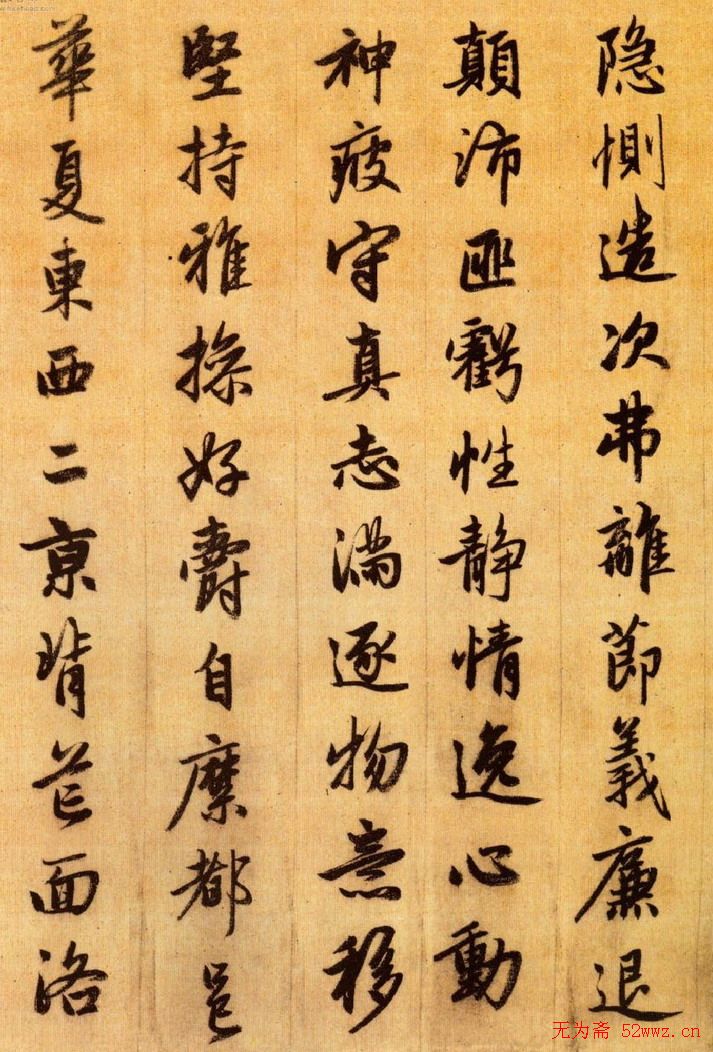 隐惻造次弗離節義廉退
顛沛匪虧性静情逸心動
神疲守真志滿逐物意移
堅持雅操好爵自縻都邑
華夏東西二京背芒面洛
无为斋 52wwz.cn